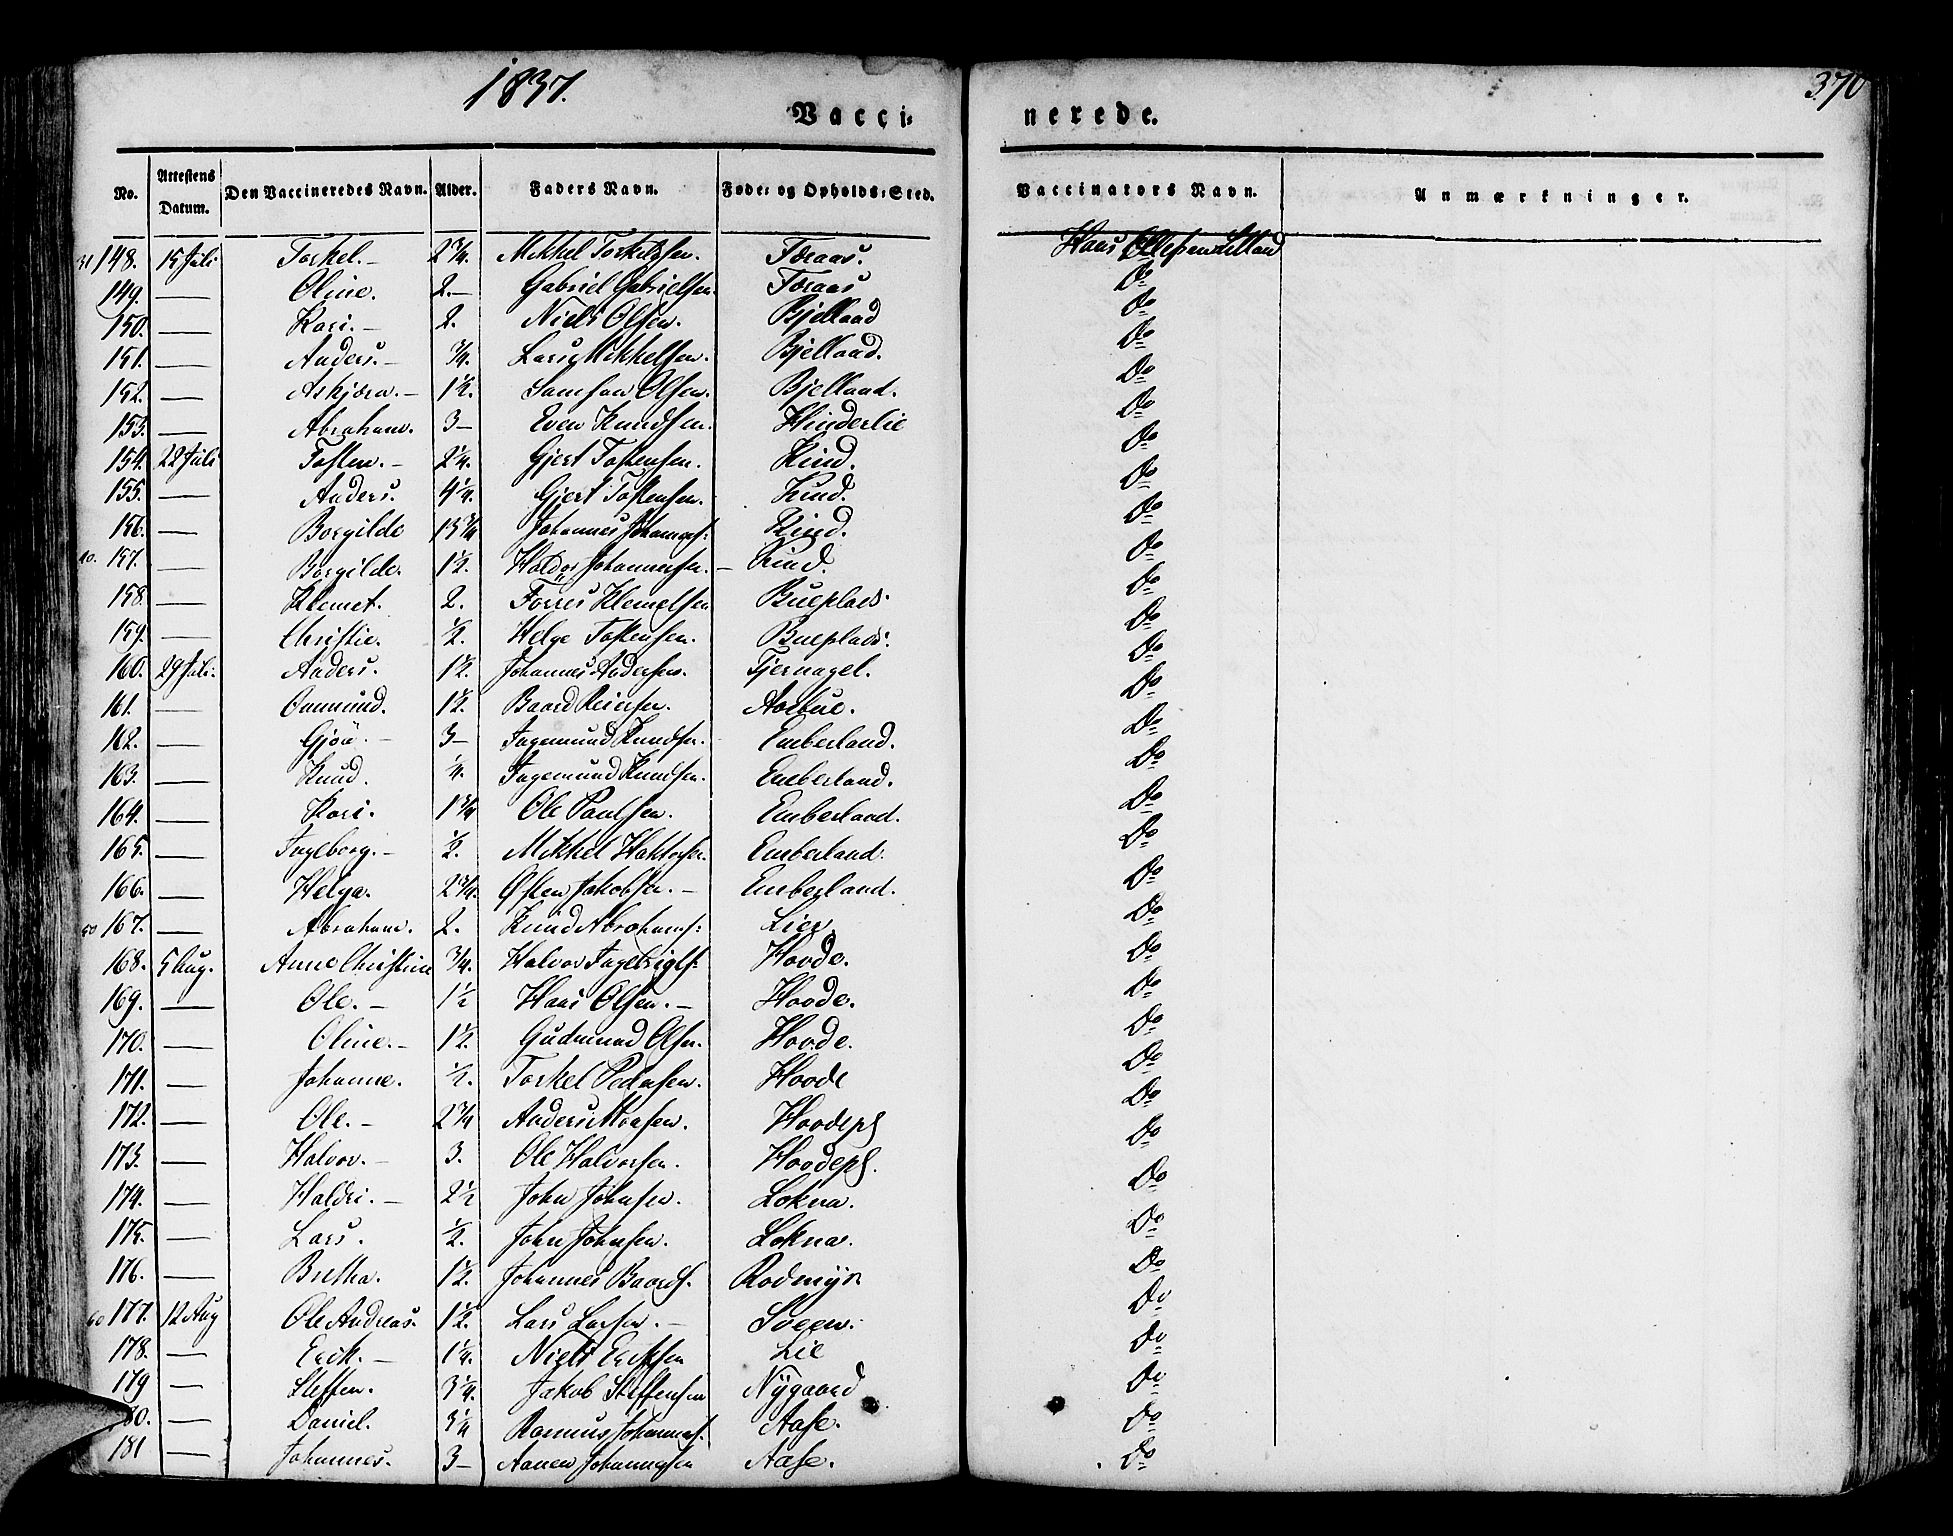 1837.
370
Vacci-
nerede.
No. Attestens Datum. Den Vaccineredes Navn. Alder. Faders Navn. Føde- og Opholds-Sted. Vaccinators Navn. Anmærkninger.
31 148. 15 Juli Torkel.— 2 3/4. Mikkel Torkelsen. Færaas. Hans
149. — Oline. 2.— Gabriel Gabrielsen. Færaas Do
150. — Kari.— 2. Niels Olsen. Bjelland Do
151. — Anders.— 3/4. Lars Mikkelsen. Bjelland. Do
152. — Askjæra.— 1 1/2. Samson Olsen. Bjelland. Do
153. — Abraham. 3— Even Knudsen. Hinderlie Do
154. 22 Juli Tosten.— 2 1/4. Gjert Tostensen. Kind. Do
155. — Anders. 4 1/4. Gjert Tostensen. Kind. Do
156. — Borgilde 15 3/4 Johannes Johannes: Kind. Do
40. 157. — Borgilde. 1 1/2. Haldor Johannesen.— Kind. Do
158. — Klemet. 2. Torres Klemetsen Bueplads. Do
159. — Christie. 1/2. Helge Tostensen. Bueplads. Do
160. 29 Juli. Anders. 1 1/2. Johannes Andersen. Tjernagel. Do
161. — Onmund. 1 1/2. Baard Reiersen. Aarbue. Do
162. — Gjøa.— 3— Ingemund Knudsen. Emberland. Do
163. — Knud. 1/4. Ingemund Knudsen. Emberland. Do
164. — Kari. 1 3/4 Ole Paulsen. Emberland. Do
165. — Ingeborg.— 1/2. Mikkel Haktorsen. Emberland. Do
166. — Helga. 2 3/4. Østen Jakobsen.— Emberland. Do
50 167. — Abraham. 2. Knud Abrahams: Lier. Do
168. 5 Aug. Anne Christine 3/4. Halvor Ingebrigts: Hovde. Do
169. — Ole.— 1 1/2 Hans Olsen.— Hovde. Do
170. — Oline.— 1 1/2. Gudmund Olsen. Hovde. Do
171. — Johanne. 1/2. Torkel Pedersen. Hovde Do
172. — Ole.— 2 3/4 Anders Monsen. Hovdepl Do
173. — Halvor.— 3. Ole Halvorsen. Hovdepl. Do
174. — Haldri.— 2 1/2 John Johnsen. Lokna. Do
175. — Lars. 1/2. John Johnsen. Lokna. Do
176. — Bretha. 1 1/2. Johannes Baards. Rodmyr Do
60 177. 12 Aug Ole Andreas. 1 1/2. Lars Larsen.— Sveen. Do
178. — Erik.— 1 1/4. Niels Eriksen Lie Do
179 — Steffen. 3 1/4. Jakob Steffensen Nygaard Do
80. — Daniel. 3 1/4 Rasmus Johannes. Aase. Do
181 — Johannes. 3— Aanen Johannesen Aase. Do